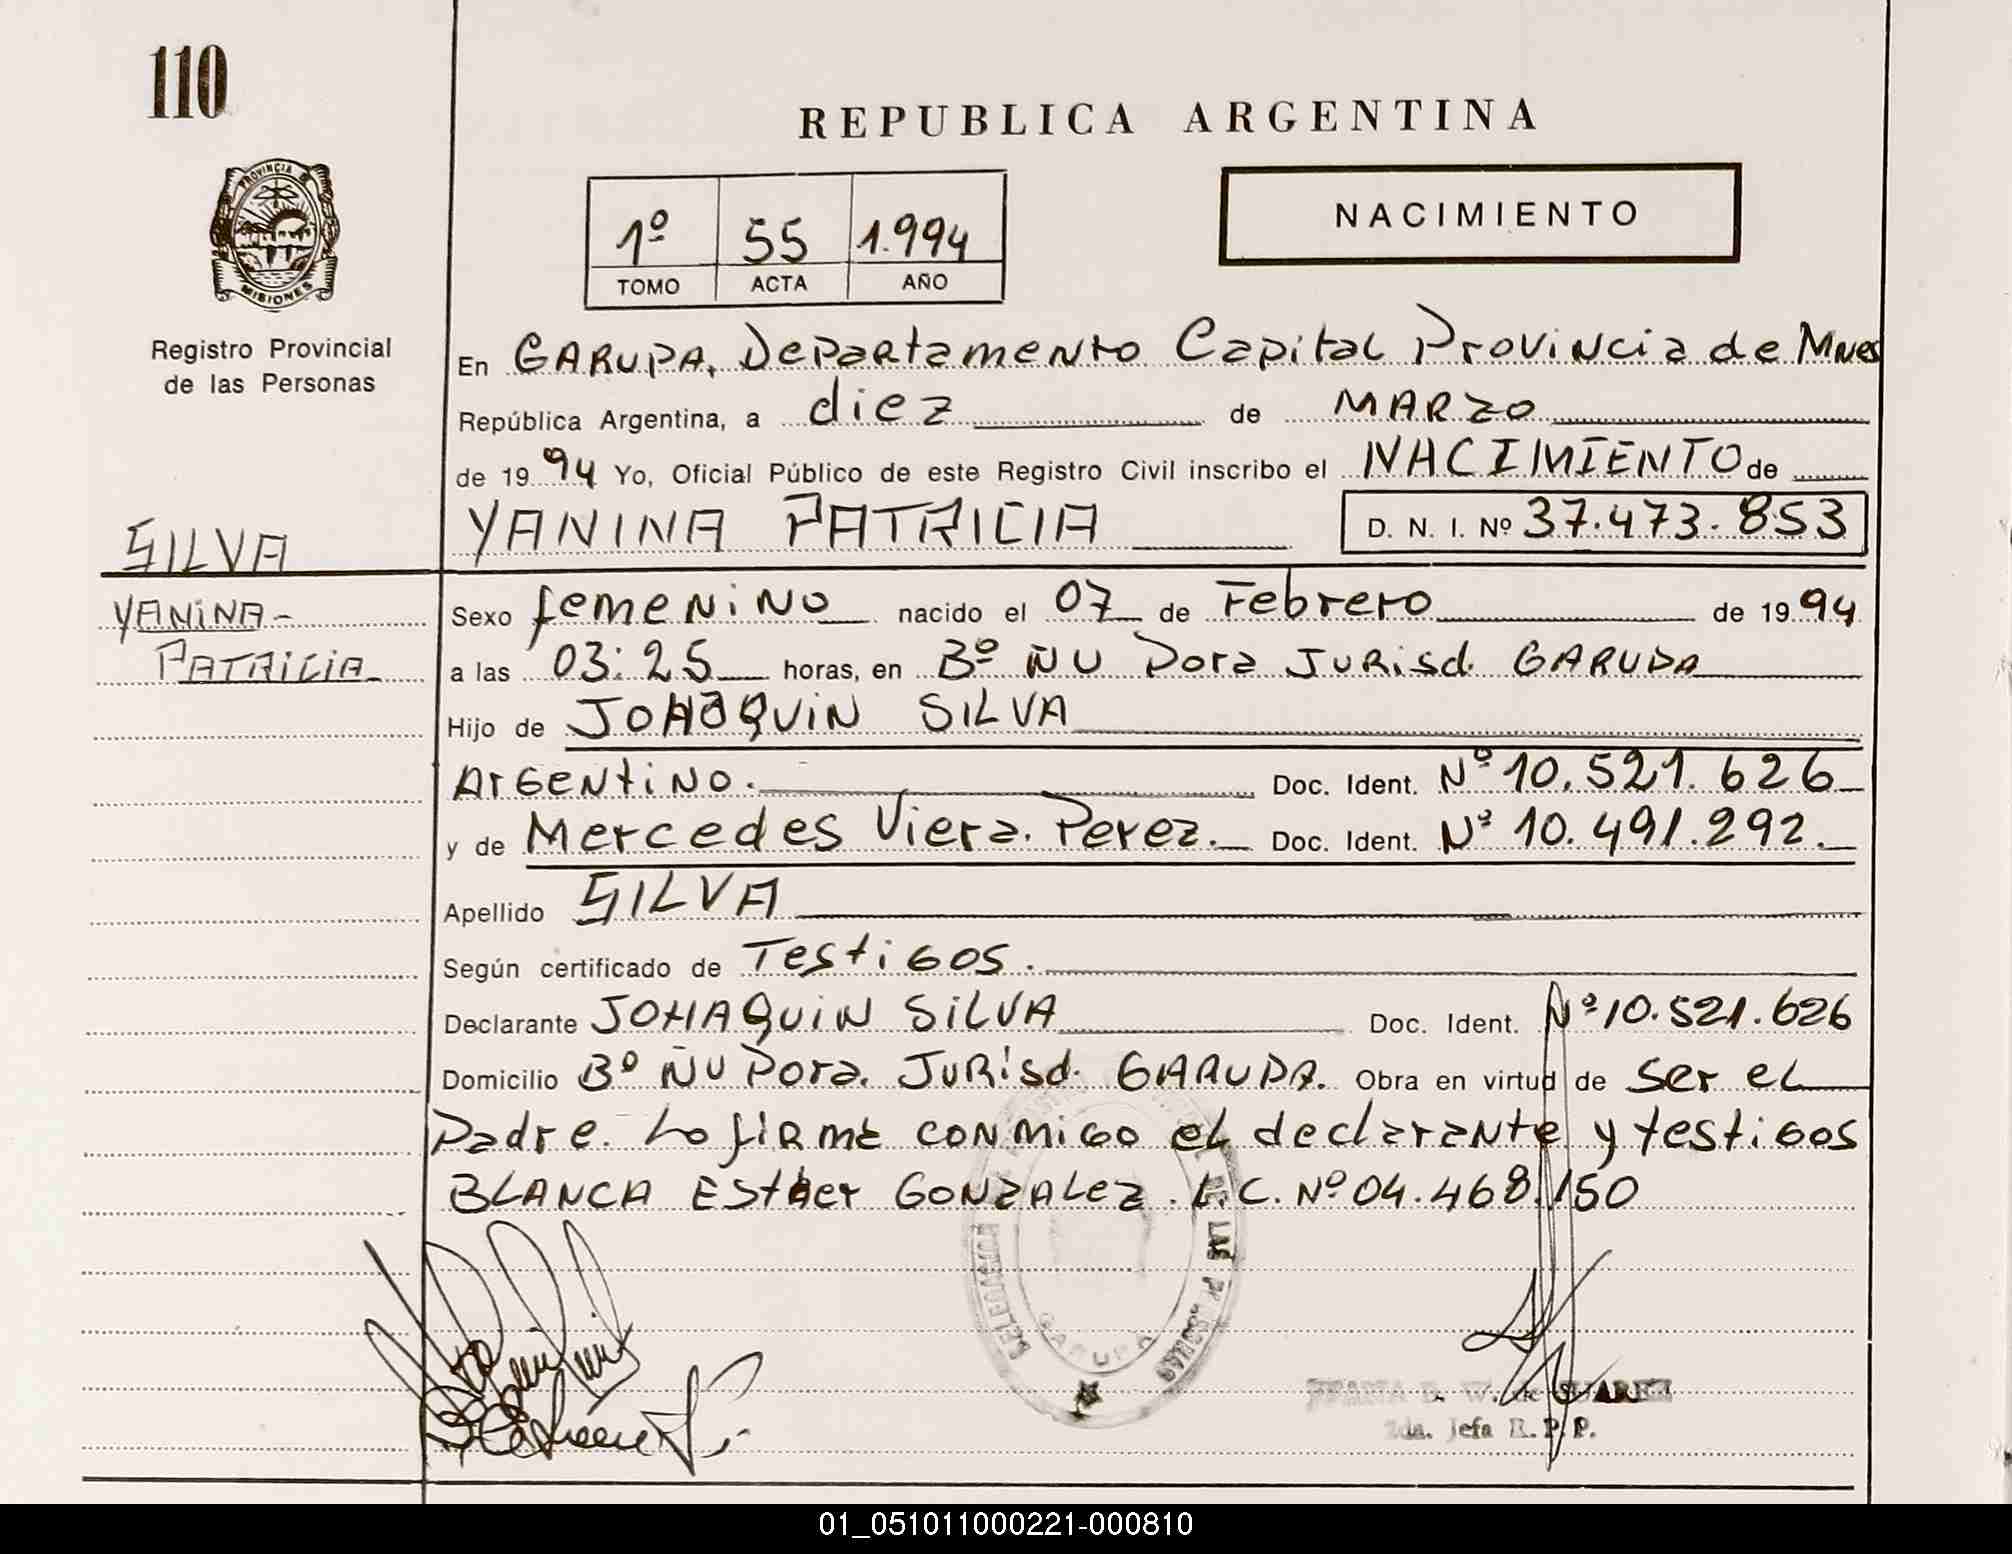 110
REPUBLICA ARGENTINA
PROVINCIA D
MISIONES
Registro Provincial
de las Personas
1º 55 1.994
TOMO ACTA AÑO
NACIMIENTO
En GARUPA, Departamento Capital Provincia de Mnes
República Argentina, a diez de MARZO
de 1994 Yo, Oficial Público de este Registro Civil inscribo el NACIMIENTO de
YANINA PATRICIA D. N. I. Nº 37.473.853
SILVA
YANINA-
PATRICIA
Sexo femenino nacido el 07 de Febrero de 1994
a las 03:25 horas, en Bº ÑU Pora Jurisd. GARUPA
Hijo de JOHAQUIN SILVA
Argentino. Doc. Ident. Nº 10.521.626
y de Mercedes Viera. Perez. Doc. Ident. Nº 10.491.292.
Apellido SILVA
Según certificado de Testigos.
Declarante JOHAQUIN SILVA Doc. Ident. Nº 10.521.626
Domicilio Bº ÑU Pora. Jurisd. GARUPA. Obra en virtud de ser el
Padre. Lo firma conmigo el declarante y testigos
BLANCA Esther GONZALEZ. L.C. Nº 04.468.150
DE LAS PERSONAS
GARUPA
W. de SUAREZ
2da. Jefa R. P. P.
01_051011000221-000810